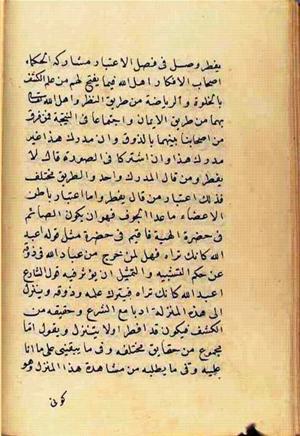 يفطر وصل في فصل الاعتبار مشاركة الحكماء
اصحاب الافكار اهل الله فيما يفتح لهم من علم الكشف
بالخلوة والرياضة من طريق النظر واهل الله
بهما من طريق الايمان واجتماعا في النتيجة فمن فرق
من اصحابنا بينهما بالذوق وان مدرك هذا غير
مدرك هذا وان اشتركا في الصورة قال لا
يفطر ومن قال المدرك واحد والطريق مختلف
فذلك اعتبار من قال يفطر واما اعتبار باطن
الاعضاء ماعدا الجوف فهو ان يكون الصائم
في حضرة الهية فاقيم في حضرة مثل قوله اعبد
الله كانك تراه فهل لمن خرج من عباد الله في ذوقه
عن حكم التشبيه والتمثيل ان يؤثر فيه قول الشارع
اعبد الله كانك تراه فيترك علمه وذوقه وينزل
الى هذه المنزلة ادبا مع الشرع وحقيقة من
الكشف فيكون قد افطر اولا يتنزل ويقول انا
مجموع من حقايق مختلفة وفي ما يبقيني على ما انا
عليه وفي ما يطلبه من مشاهدة هذا المنزل وهو
كوني